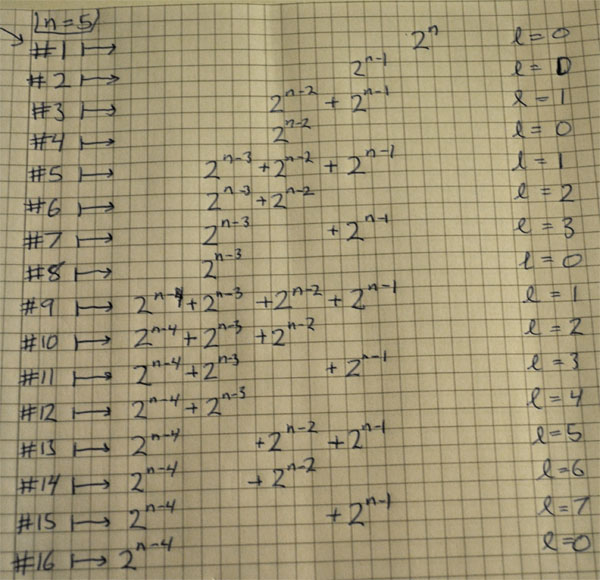 n=5
#1 ↦ 2^n l=0
#2 ↦ 2^{n-1} l=0
#3 ↦ 2^{n-2} + 2^{n-1} l=1
#4 ↦ 2^{n-2} l=0
#5 ↦ 2^{n-3} + 2^{n-2} + 2^{n-1} l=1
#6 ↦ 2^{n-3} + 2^{n-2} l=2
#7 ↦ 2^{n-3} + 2^{n-1} l=3
#8 ↦ 2^{n-3} l=0
#9 ↦ 2^{n-4} + 2^{n-3} + 2^{n-2} + 2^{n-1} l=1
#10 ↦ 2^{n-4} + 2^{n-3} + 2^{n-2} l=2
#11 ↦ 2^{n-4} + 2^{n-3} + 2^{n-1} l=3
#12 ↦ 2^{n-4} + 2^{n-3} l=4
#13 ↦ 2^{n-4} + 2^{n-2} + 2^{n-1} l=5
#14 ↦ 2^{n-4} + 2^{n-2} l=6
#15 ↦ 2^{n-4} + 2^{n-1} l=7
#16 ↦ 2^{n-4} l=0